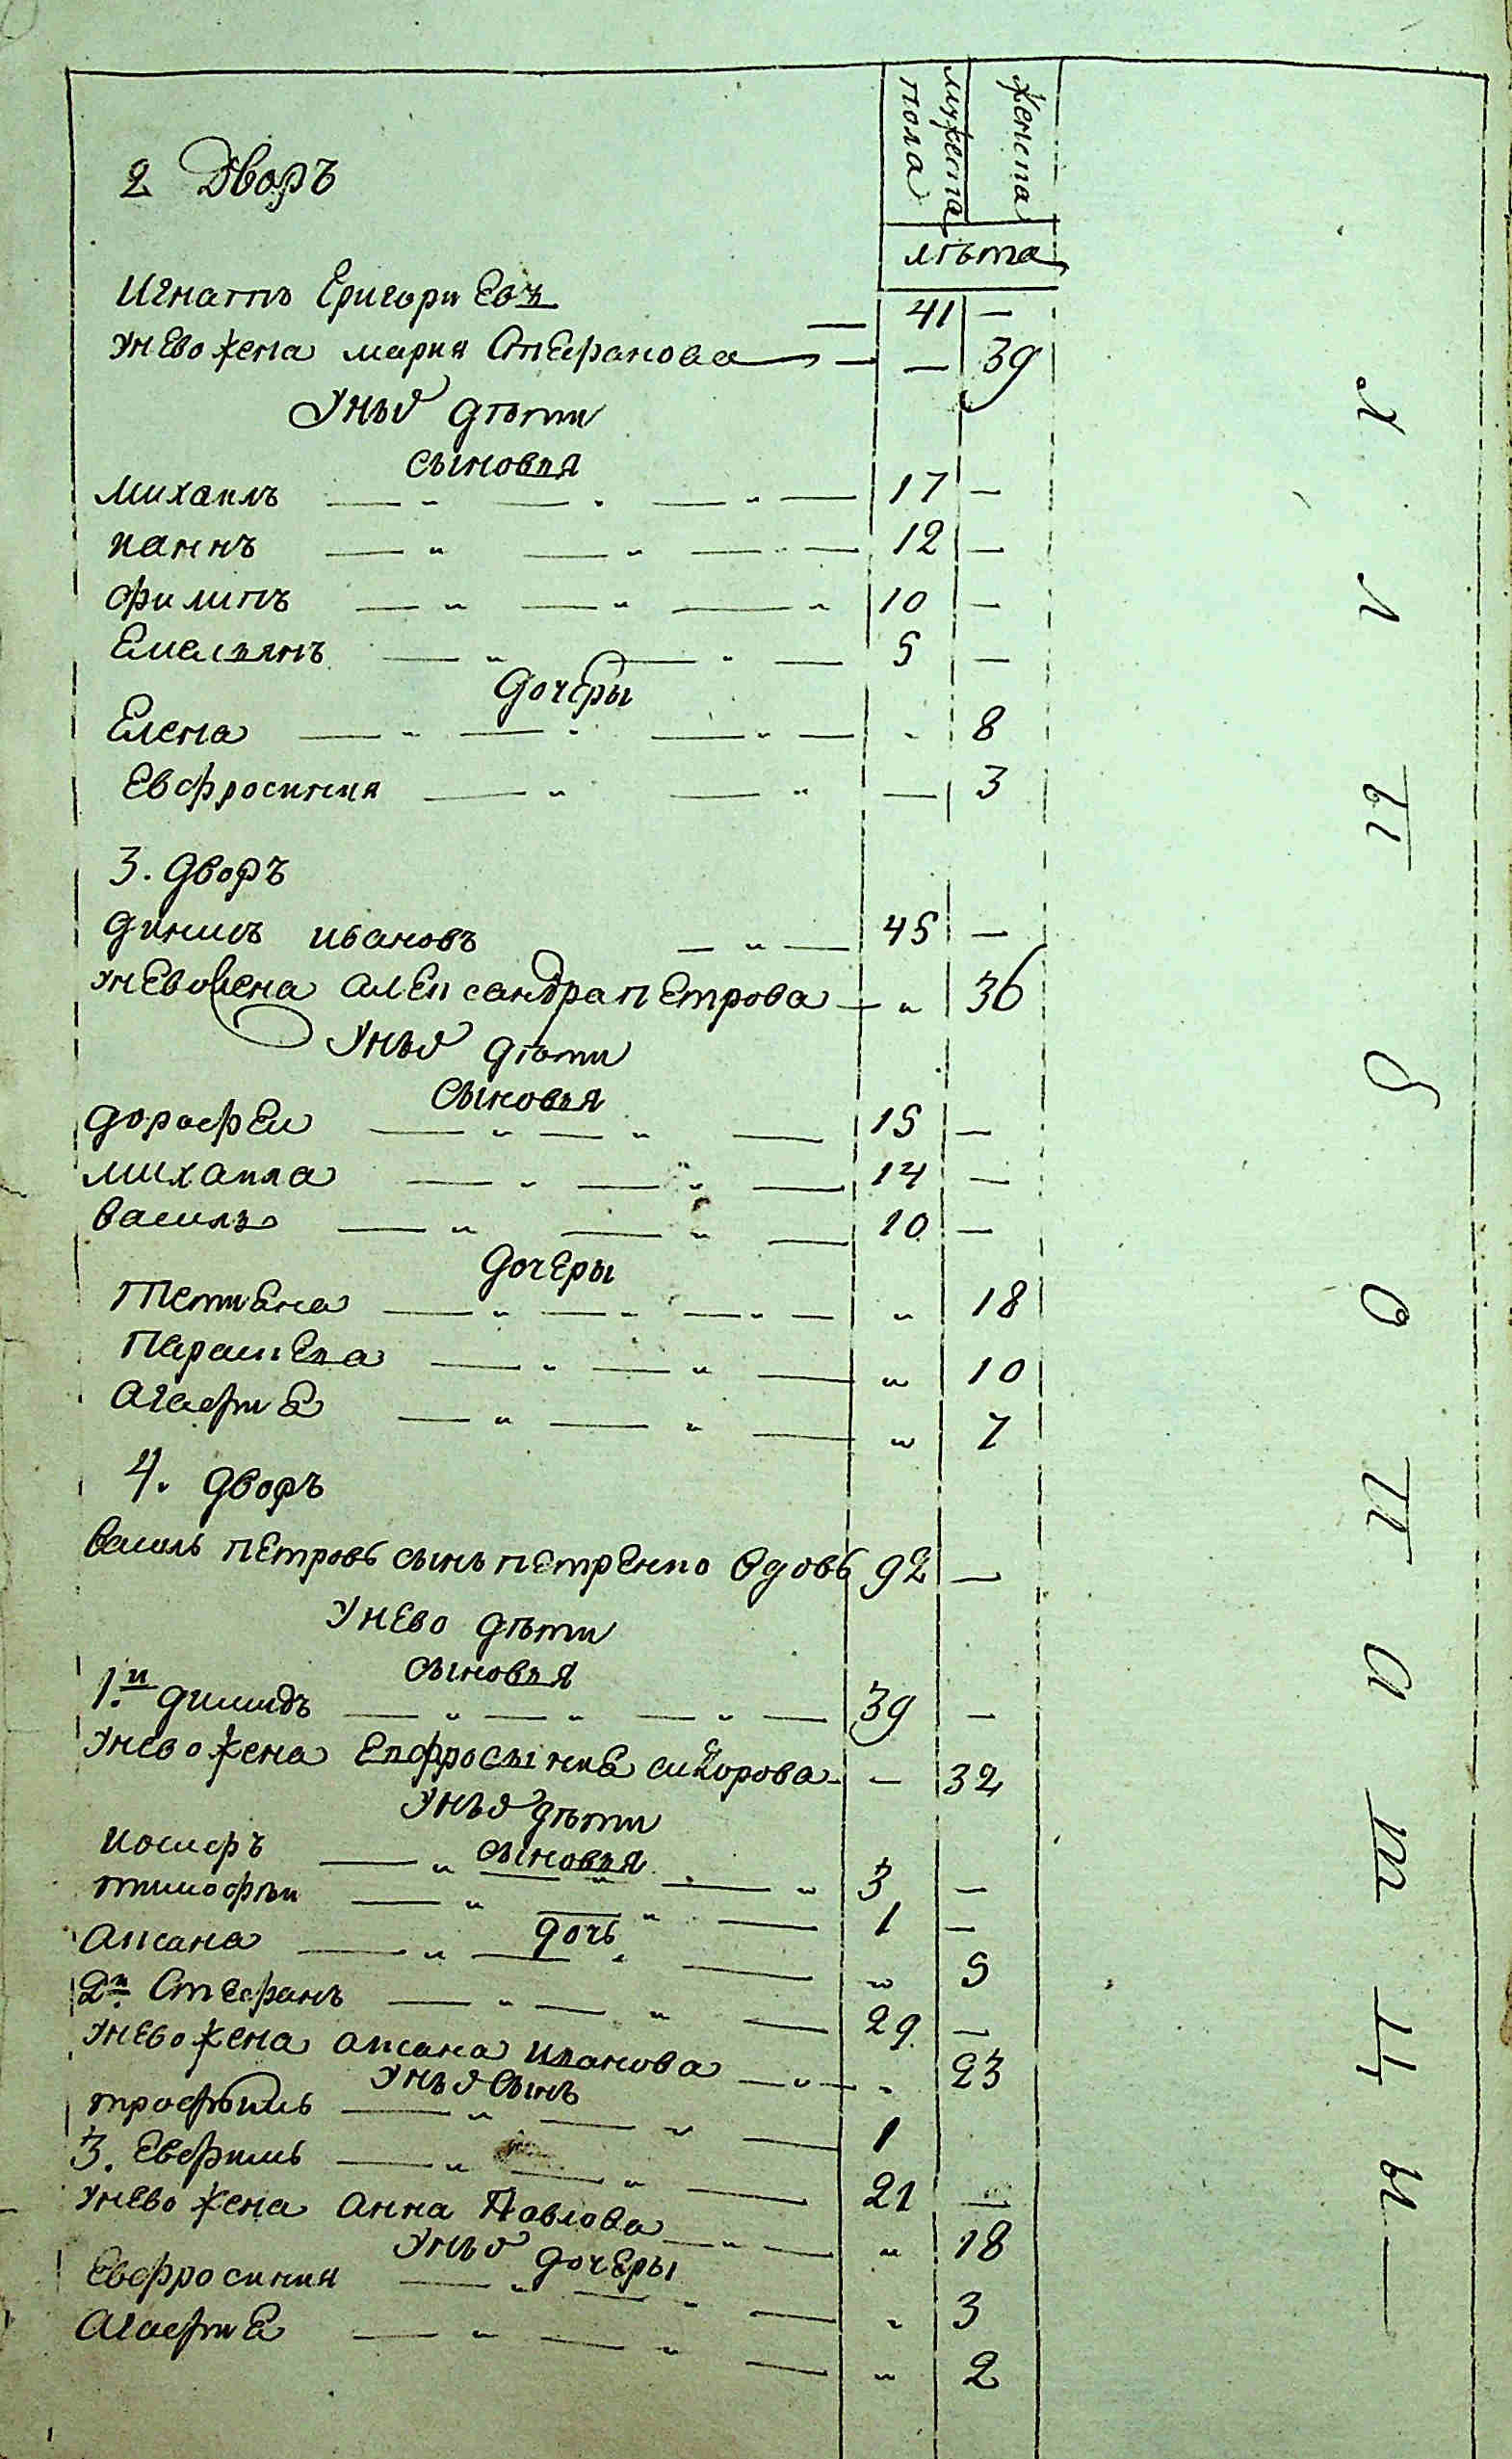 мужеска пола
женска
лѣта
2 Дворъ
Игнатъ Григориевъ 41 —
унево жена мария Стефанова — 39
унъхъ дѣти
сыновья
михаилъ — „ — „ — „ — 17 —
ианнъ — „ — „ — „ — 12 —
филипъ — „ — „ — „ 10 —
Емельянъ — „ — „ — 5 —
дочеры
Елена — „ — „ — „ — „ 8
Евфросиния — „ — „ — 3
3. дворъ
динисъ ивановъ — „ — 45 —
унево жена александра петрова — „ 36
унъхъ дѣти
сыновья
дорофеи — „ — „ — 15 —
михаила — „ — „ — 14 —
василь — „ — „ — 10 —
дочеры
тетиана — „ — „ — „ — „ 18
параскева — „ — „ — „ 10
агафия — „ — „ — „ 7
4. дворъ
василь петровъ сынъ петренко вдовъ 92 —
унево дѣти
сыновья
1.й димидъ — „ — „ — „ — 39 —
унево жена Евфросыния сидорова — — 32
унъхъ дѣти
сыновья
иосифъ — „ — „ — „ 3 —
тимофѣи — „ — „ — 1 —
дочь
аксана — „ — „ — „ 5
2.й Стефанъ — „ — „ — 29 —
унево жена аксана иванова — „ — „ 23
унъхъ сынъ
трофимъ — „ — „ — 1
3. евфимъ — „ — „ — 21 —
унево жена анна Павлова — „ — „ 18
унъхъ дочеры
Евфросиния — „ — „ — „ 3
агафия — „ — „ — „ 2